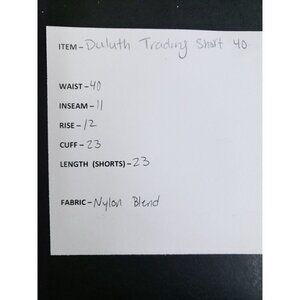 ITEM – Duluth Trading Short 40
WAIST – 40
INSEAM – 11
RISE – 12
CUFF – 23
LENGTH (SHORTS) – 23
FABRIC – Nylon Blend